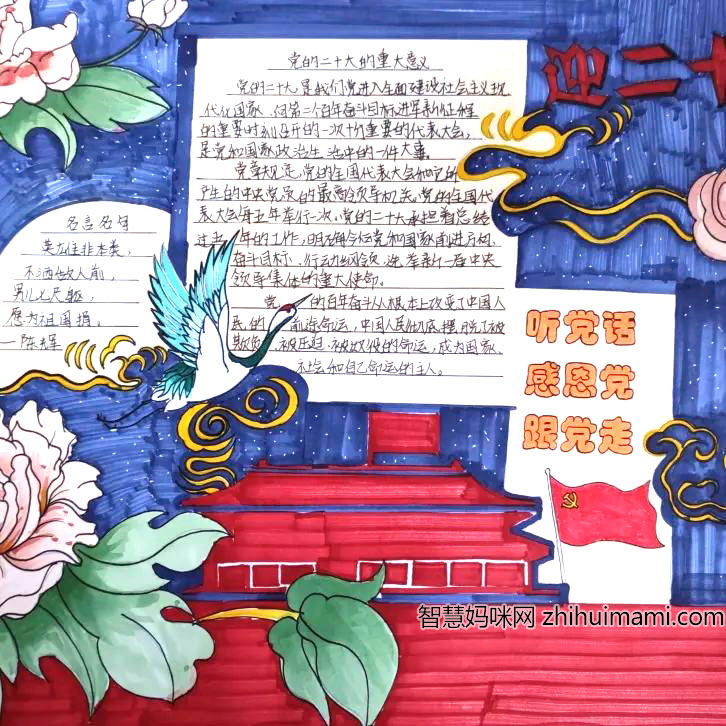 迎二十
党的二十大的重大意义
党的二十大,是我们党进入全面建设社会主义现
代化国家、向第二个百年奋斗目标进军新征程
的重要时刻召开的一次十分重要的代表大会,
是党和国家政治生活中的一件大事。
党章规定,党的全国代表大会和它所
产生的中央委员会的最高领导机关。党的全国代
表大会每五年举行一次,党的二十大承担着总结
过去 年的工作,明确今后党和国家前进方向、
奋斗目标、行动纲领,选举新一届中央
领导集体的重大使命。
党 的百年奋斗从根本上改变了中国人
民的 前途命运,中国人民彻底摆脱了被
欺负、被压迫、被奴役的命运,成为国家、
社会和自己命运的主人。
名言名句
英雄非本类,
不洒敌人前,
男儿七尺躯,
愿为祖国捐。
—陈辉
听党话
感恩党
跟党走
智慧妈咪网 zhihuimami.com